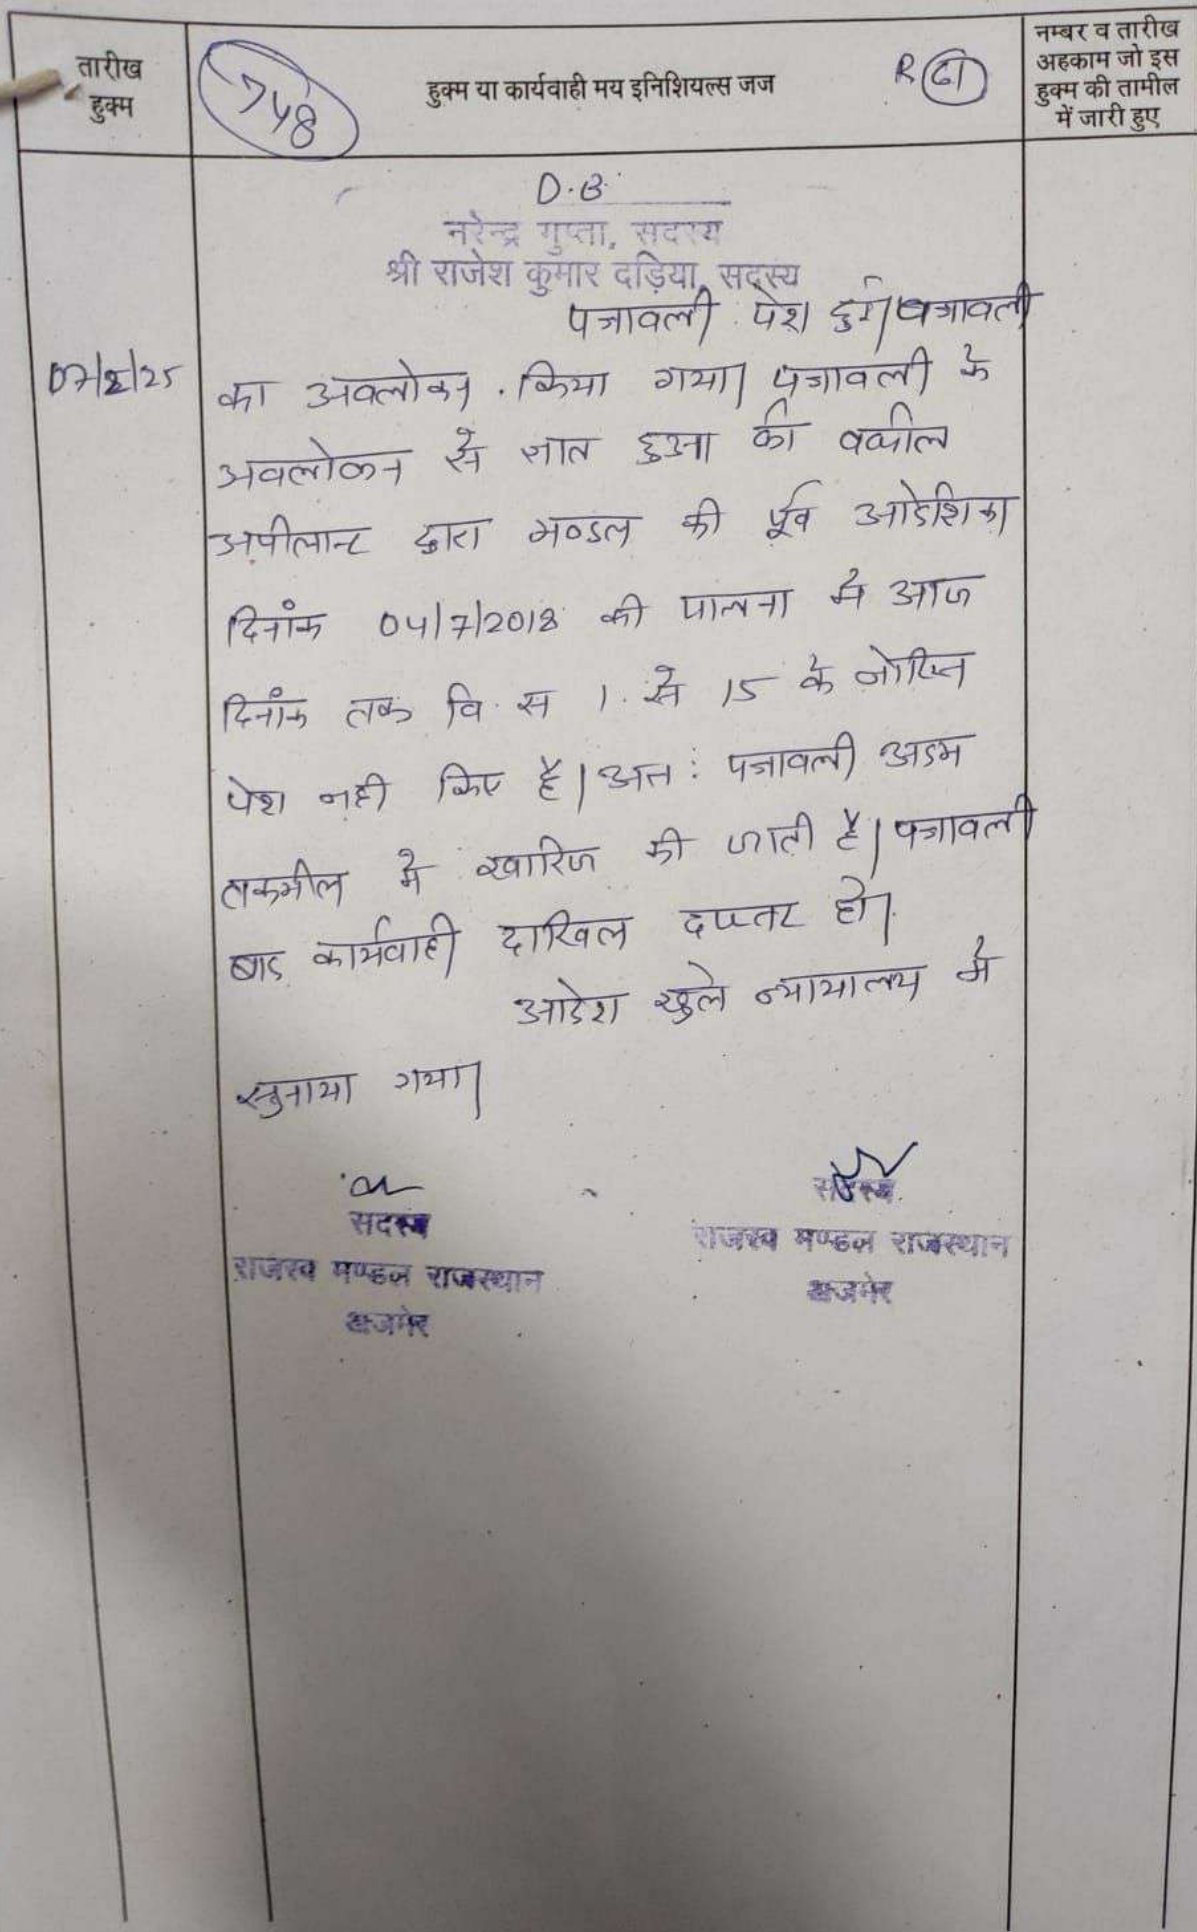 तारीख
हुक्म
748
हुक्म या कार्यवाही मय इनिशियल्स जज
R 61
नम्बर व तारीख
अहकाम जो इस
हुक्म की तामील
में जारी हुए
D.B.
नरेन्द्र गुप्ता, सदस्य
श्री राजेश कुमार दड़िया, सदस्य
पत्रावली पेश हुई। पत्रावली
07/2/25
का अवलोकन किया गया। पत्रावली के
अवलोकन से ज्ञात हुआ की वकील
अपीलान्ट द्वारा मण्डल की पूर्व आदेशिका
दिनांक 04/7/2018 की पालना मे आज
दिनांक तक वि. स 1. से 15 के नोटिस
पेश नही किए है। अत: पत्रावली अदम
तकमील मे खारिज की जाती है। पत्रावली
बाद कार्यवाही दाखिल दफ्तर हो।
आदेश खुले न्यायालय मे
सुनाया गया।
सदस्य
राजस्व मण्डल राजस्थान
अजमेर
सदस्य
राजस्व मण्डल राजस्थान
अजमेर